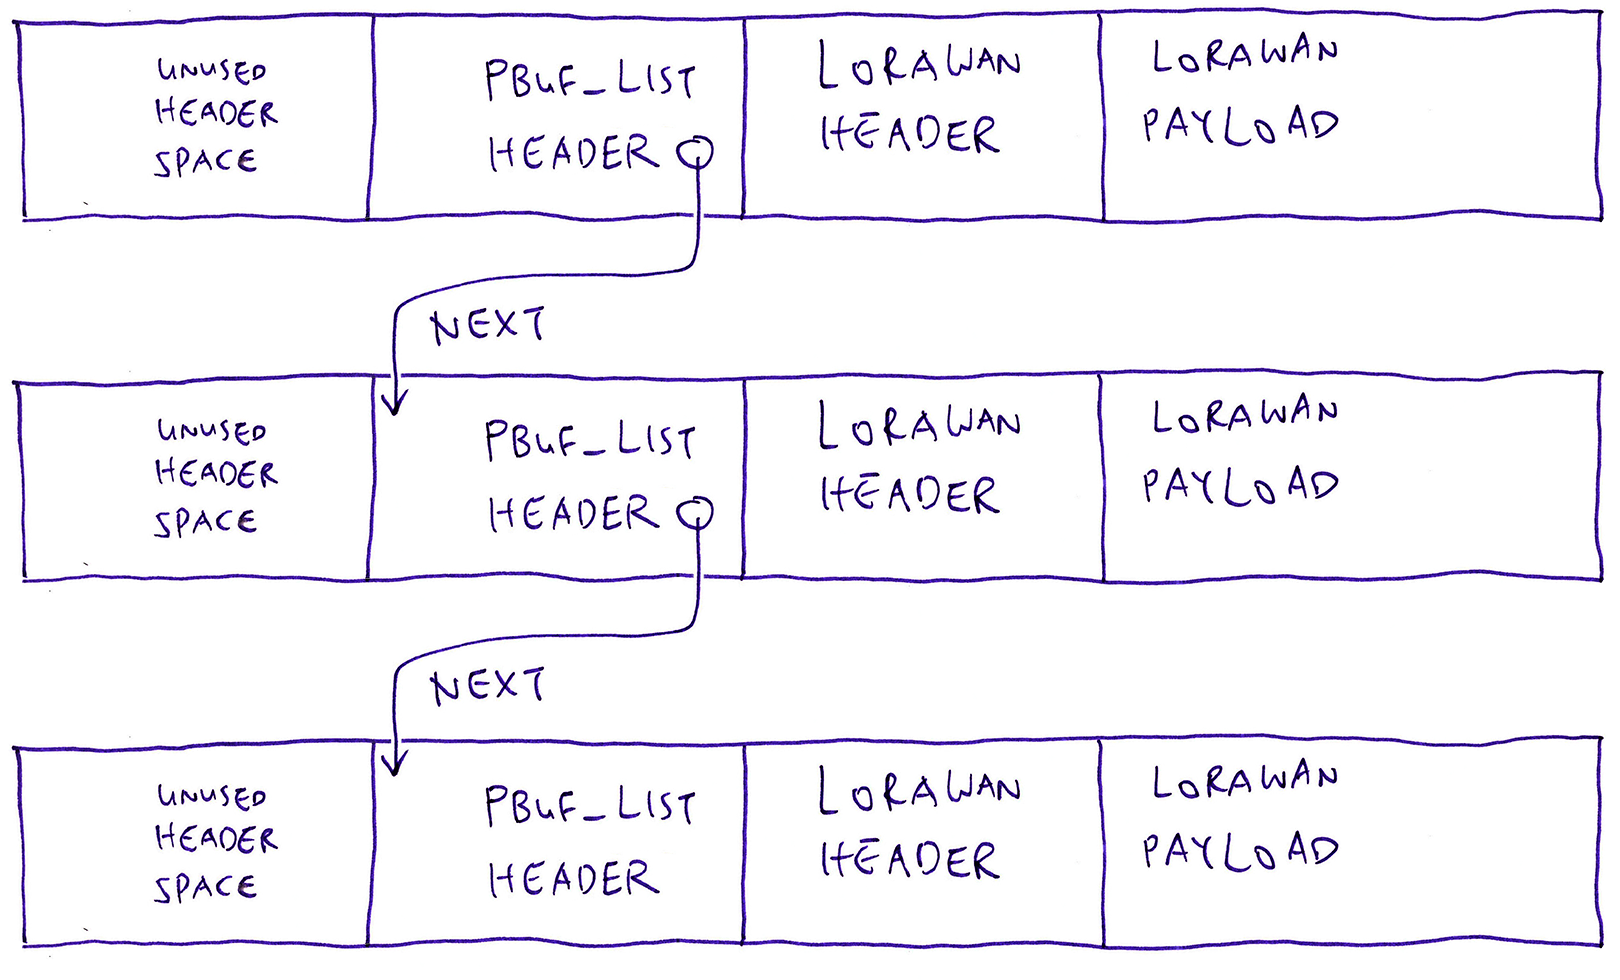 UNUSED
HEADER
SPACE
PBUF_LIST
HEADER
LORAWAN
HEADER
LORAWAN
PAYLOAD
NEXT
UNUSED
HEADER
SPACE
PBUF_LIST
HEADER
LORAWAN
HEADER
LORAWAN
PAYLOAD
NEXT
UNUSED
HEADER
SPACE
PBUF_LIST
HEADER
LORAWAN
HEADER
LORAWAN
PAYLOAD